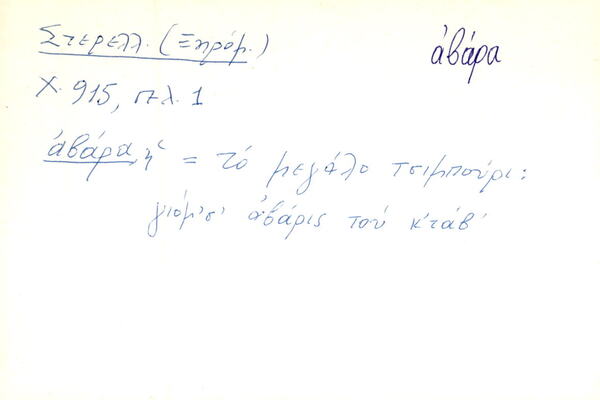 Στερελλ. (Ξηρόμ.)
ἀβάρα
Χ. 915, πλ. 1
ἀβάρα, ἡ = τό μεγάλο τσιμπούρι:
γιόμ'σ' ἀβάρις τού κ'τάβ'